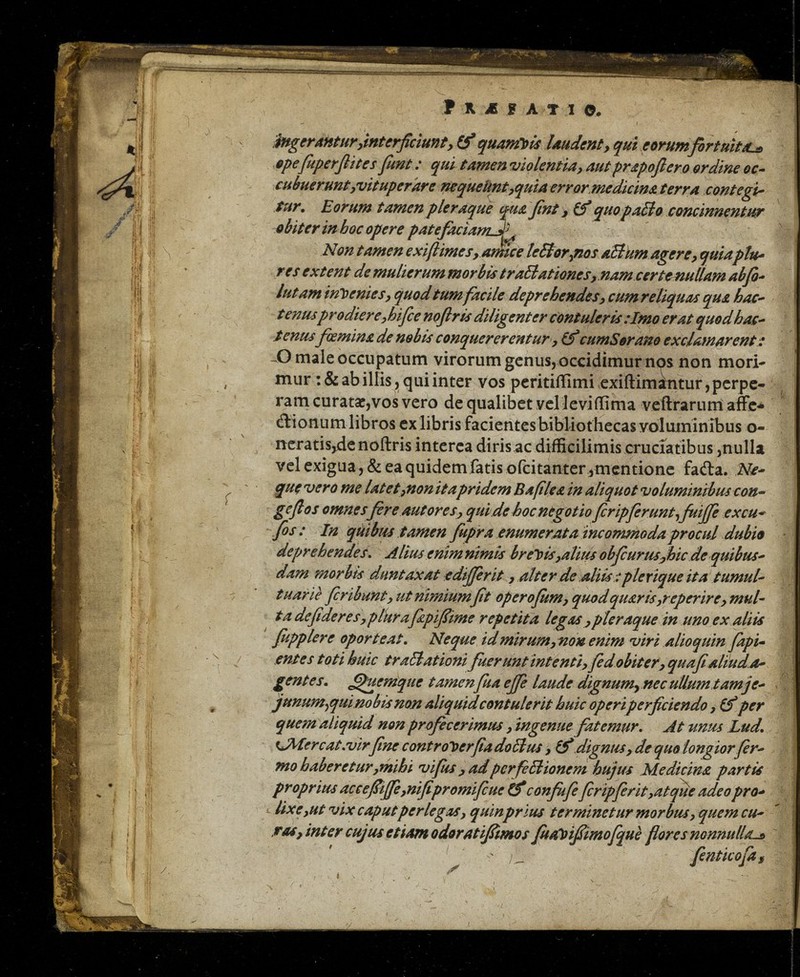 PRÆFATIO.
ingerantur,interficiunt, & quamvis laudent, qui eorum fortuita
ope superstites sunt: qui tamen violentia, aut præpostero ordine oc-
cubuerunt,vituperare nequeunt,quia error medicinæ terra contegi-
tur. Eorum tamen pleraque quæ sint, & quo pacto concinnentur
obiter in hoc opere patefaciam.
Non tamen existimes, amice lector,nos actum agere, quia plu-
res extent de mulierum morbis tractationes, nam certe nullam abso-
lutam invenies, quod tum facile deprehendes, cum reliquas quæ hac-
tenus prodiere,hisce nostris diligenter contuleris: Imo erat quod hac-
tenus fœminæ de nobis conquererentur, & cum Sorano exclamarent:
O male occupatum virorum genus, occidimur nos non mori-
mur: & ab illis, qui inter vos peritissimi existimantur, perpe-
ram curatæ, vos vero de qualibet vel levissima vestrarum affe-
ctionum libros ex libris facientes bibliothecas voluminibus o-
neratis,de nostris interea diris ac difficilimis cruciatibus ,nulla
vel exigua, & ea quidem satis oscitanter ,mentione facta. Ne-
que vero me latet,non ita pridem Basileæ in aliquot voluminibus con-
gestos omnes fere autores, qui de hoc negotio scripserunt, fuisse excu-
sos: In quibus tamen supra enumerata incommoda procul dubio
deprehendes. Alius enim nimis brevis,alius obscurus,hic de quibus-
dam morbis duntaxat edisserit, alter de aliis: plerique ita tumul-
tuariè scribunt, ut nimium sit operosum, quod quæris,reperire, mul-
ta desideres, plura sæpissime repetita legas, pleraque in uno ex aliis
supplere oporteat. Neque id mirum, non enim viri alioquin sapi-
entes toti huic tractationi fuerunt intenti, sed obiter, quasi aliud a-
gentes. Quemque tamen sua esse laude dignum, nec ullum tam je-
junum,qui nobis non aliquid contulerit huic operi perficiendo, & per
quem aliquid non profecerimus, ingenue fatemur. At unus Lud.
Mercat.vir sine controversia doctus, & dignus, de quo longior ser-
mo haberetur,mihi visus, ad perfectionem hujus Medicinæ partis
proprius accessisse,nisi promiscue & confuse scripserit,atque adeo pro-
lixe,ut vix caput perlegas, quin prius terminetur morbus, quem cu-
ras, inter cujus etiam odoratissimos suavissimosque flores nonnulla
senticosa,